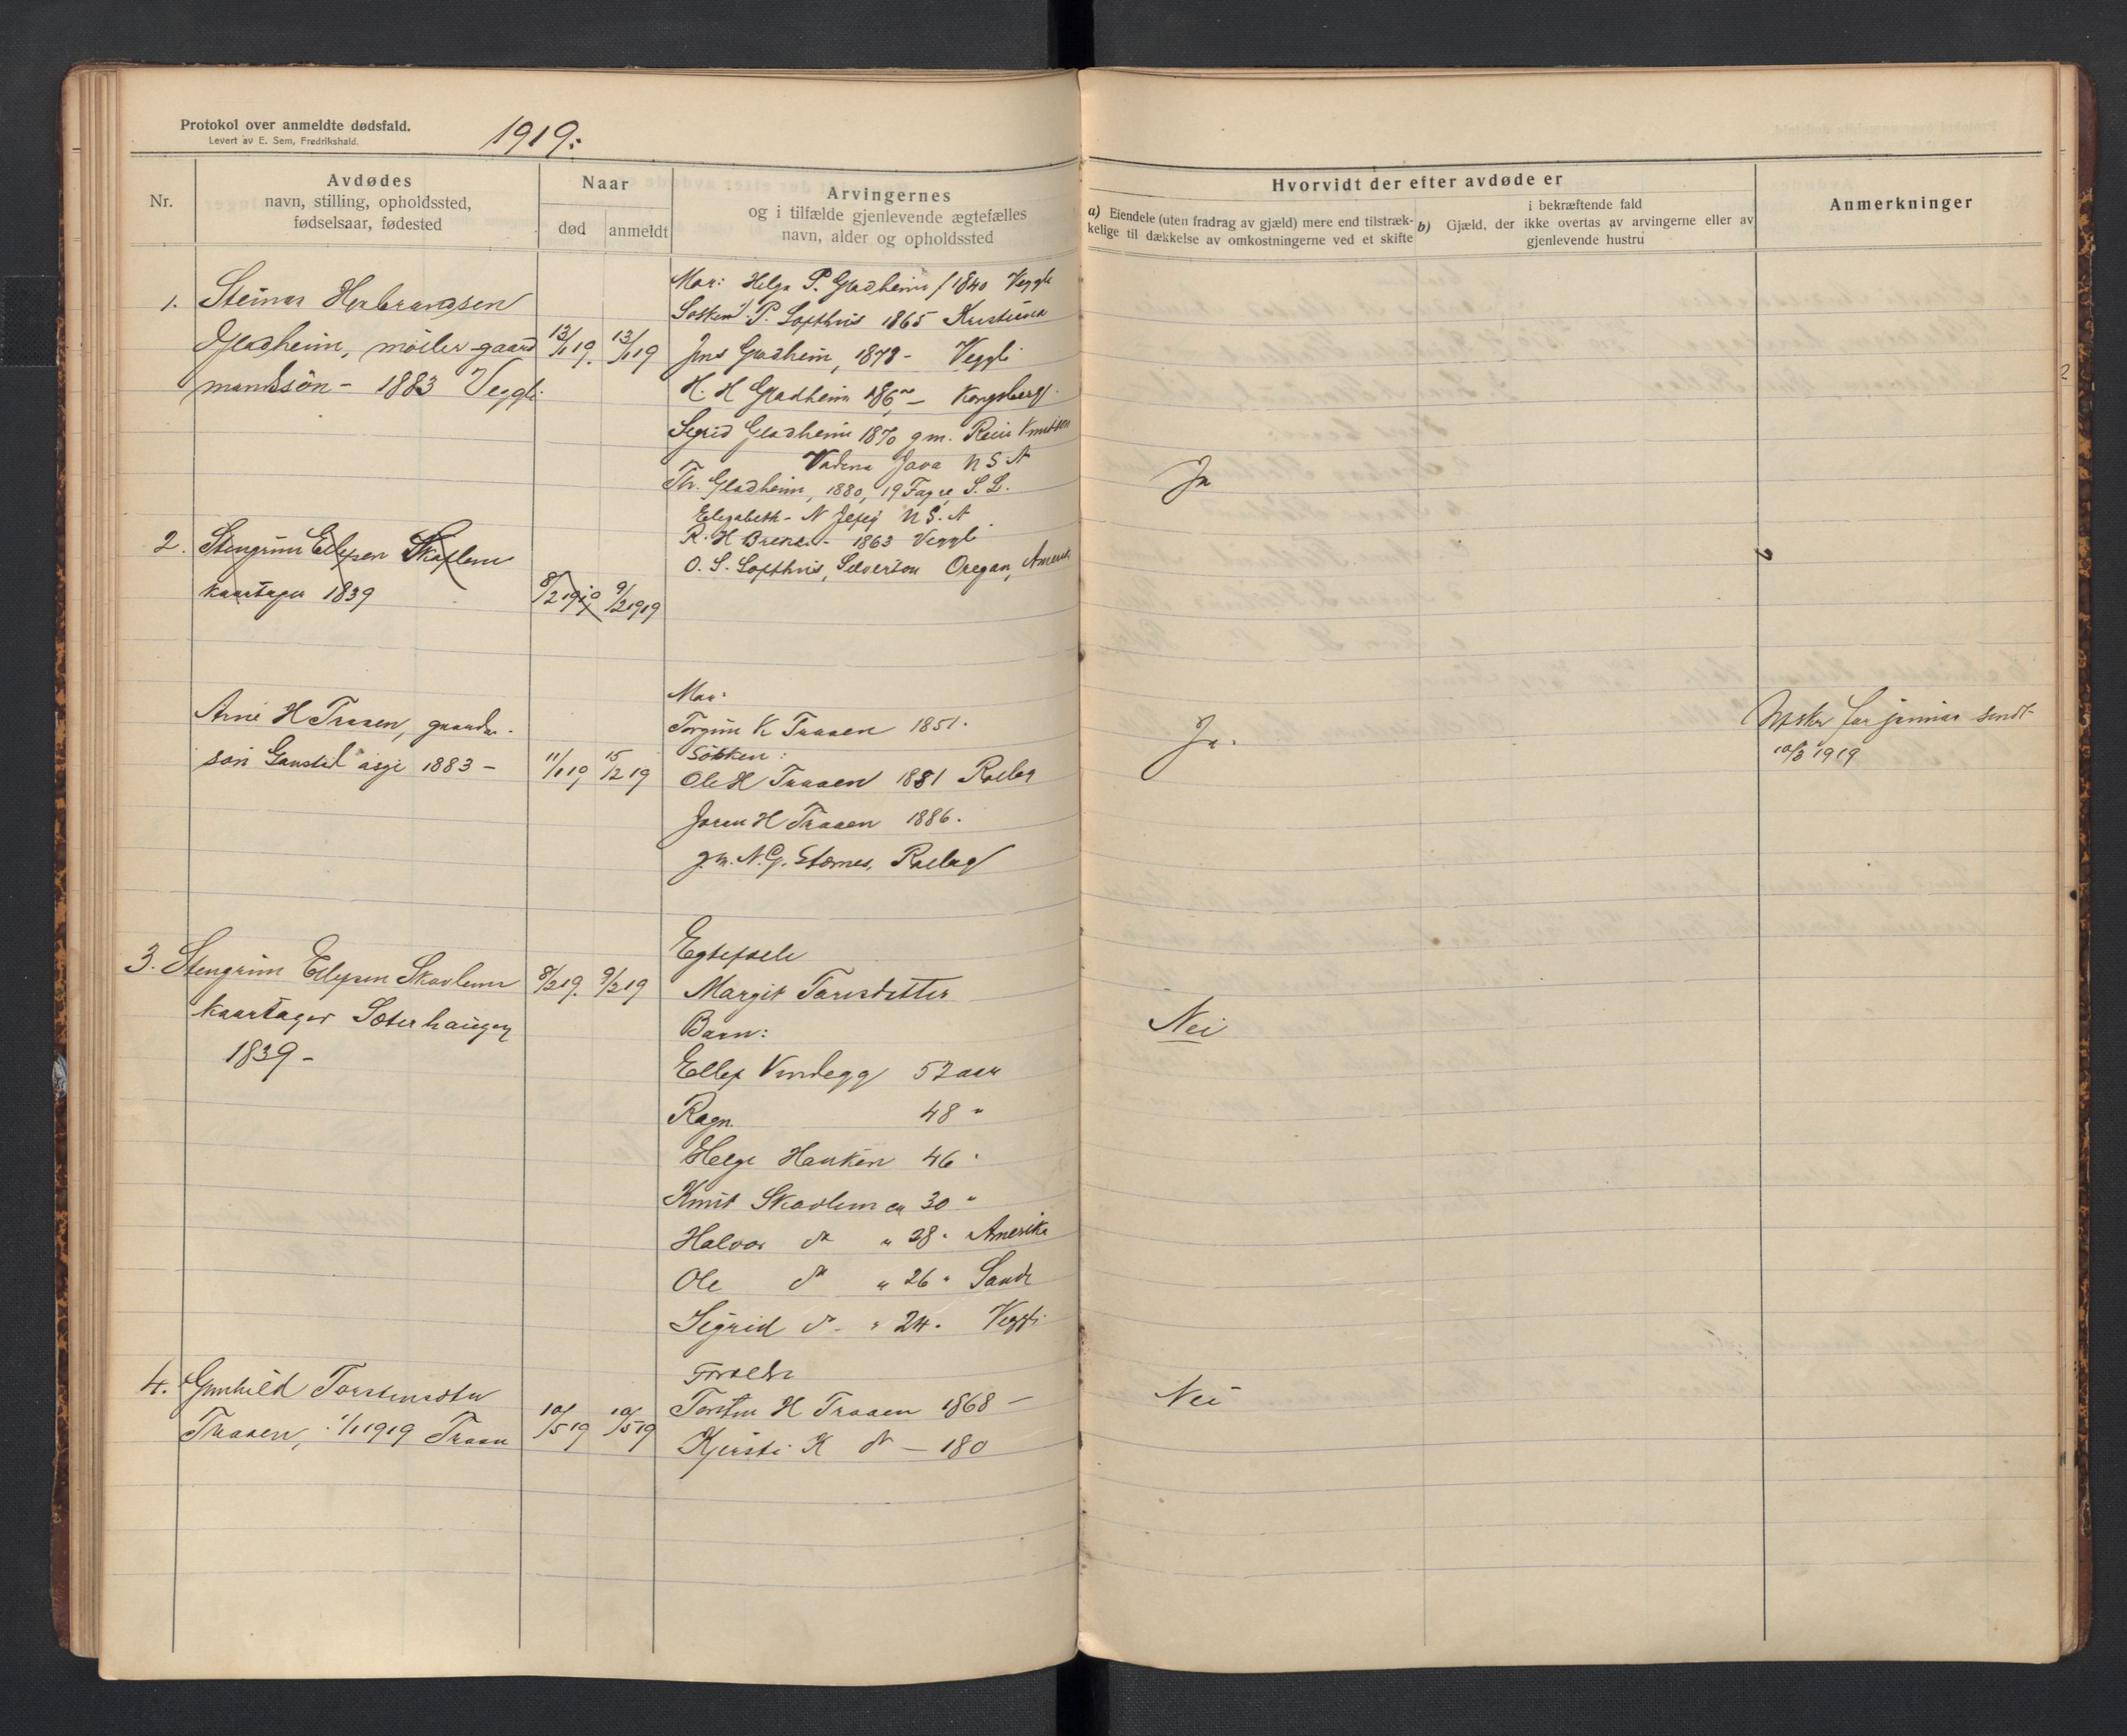 Protokol over anmeldte dødsfald.
Levert av E. Sem, Fredrikshald.
1919:
Nr.
Avdødes
navn, stilling, opholdssted,
fødselsaar, fødested
Naar
død
anmeldt
Arvingernes
og i tilfælde gjenlevende ægtefælles
navn, alder og opholdssted
Hvorvidt der efter avdøde er
a) Eiendele (uten fradrag av gjæld) mere end tilstræk-
kelige til dækkelse av omkostningerne ved et skifte
i bekræftende fald
b) Gjæld, der ikke overtas av arvingerne eller av
gjenlevende hustru
Anmerkninger
1. Steinar Herbrandsen
Gladheim, møiler gaard
mandsön - 1883 Veggli.
13/1 19. 13/1 19
Mor: Helga P. Gladheim f 1840 Veggli
Søsken: P. Lofthus 1865 Kristiania
Jens Gladheim, 1878 - Veggli
H. H Gladheim 186 - Kongsberg.
Sigrid Gladheim 1870 g m. Knudsen
Java N S A
Th. Gladheim, 1880, 19 S. L.
Elizabeth - N N S. A
R. H - 1863 Veggli
O. S. Lofthus, Silverton Oregan, Amerik
Ja
2. Stengrim Ellefsen Skaflem
kaartager 1839
8/2 1919 9/2 1919
Arne H Traaen, gaardm.
søn 1883 -
11/1 19 15/2 19
Mor:
Torgun K Traaen 1851.
Søsken:
Ole H Traaen 1881 Rollag
Joren H Traaen 1886.
g. m. N. G. Stærnes, Rollag
Ja.
for januar sendt
10/3 1919
3. Stengrim Ellefsen Skavlem
kaartager Sæterhaugen
1839 -
8/2 19. 9/2 19
Egtefælle
Margit Torisdatter
Barn:
Ellef Vindegg 52 aar
Ragn. 48 "
Helge Hauken 46 "
Knut Skavlem ca 30 "
Halvor do " 28 " Amerika
Ole do " 26 " Sande
Sigrid do " 24. Veggli
Nei
4. Gunhild Torstensdtr
Traaen, 1/1 1919 Traaen
10/5 19 10/5 19
Forældre
Torsten H Traaen 1868 -
Kjersti K do - 180
Nei